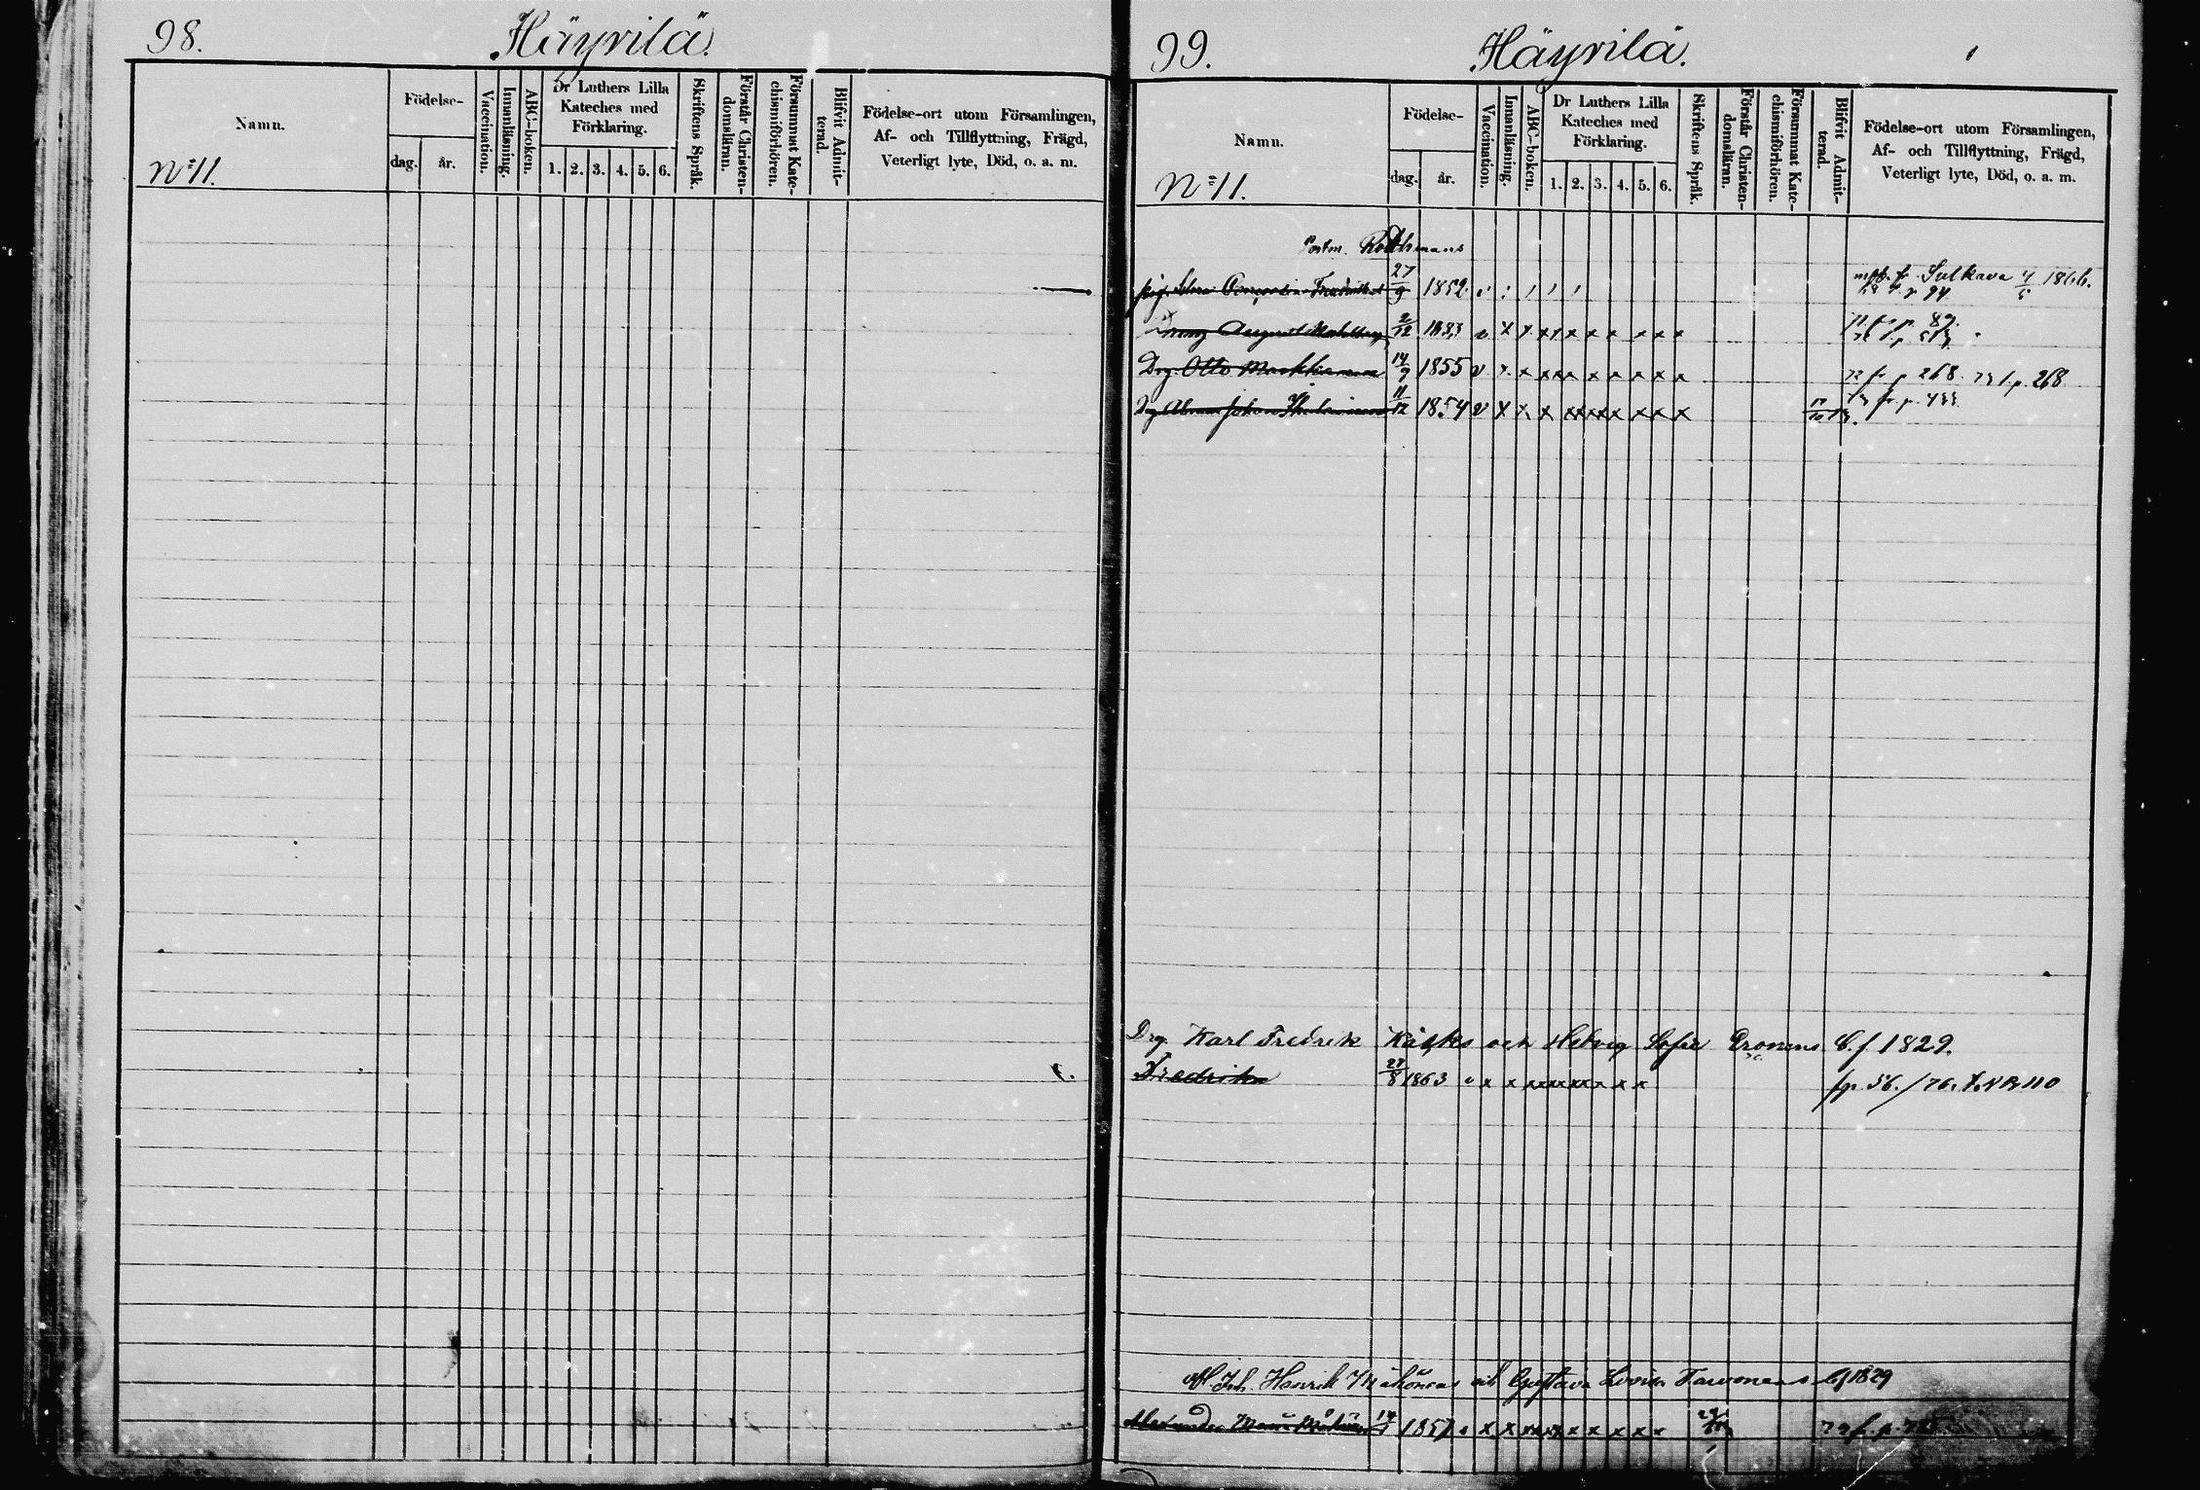 98.
Häyrilä.
Namn.
Födelse-
dag.
år.
Vaccination.
Innanläsning.
ABC-boken.
Dr Luthers Lilla
Kateches med
Förklaring.
1. 2. 3. 4. 5. 6.
Skriftens Språk.
Förstår Christen-
domsläran.
Försummat Kate-
chismiförhören.
Blifvit Admit-
terad.
Födelse-ort utom Församlingen,
Af- och Tillflyttning, Frägd,
Veterligt lyte, Död, o. a. m.
N:11.
99.
Häyrilä.
Namn.
Födelse-
dag.
år.
Vaccination.
Innanläsning.
ABC-boken.
Dr Luthers Lilla
Kateches med
Förklaring.
1. 2. 3. 4. 5. 6.
Skriftens Språk.
Förstår Christen-
domsläran.
Försummat Kate-
chismiförhören.
Blifvit Admit-
terad.
Födelse-ort utom Församlingen,
Af- och Tillflyttning, Frägd,
Veterligt lyte, Död, o. a. m.
N:11.
Rothmans
27/9 1852 Sulkava 1866.
p 94
August 2/12 1853 v x x x x x x x x x x fr p. 89.
Drg. Otto 14/9 1855 v x x x x x x x x x x 72 fr p 268. 73 t. p. 268
Johan 11/12 1854 v x x x x x x x x x x fr. p. 433.
Drg. Karl Fredrik och Hedvig Sofie b. f. 1829.
Fredrika 27/8 1863 x x x x x x x x x fp. 56. / 76. t. NB 110
Joh. Henrik Gustava Lovisa Tarvonens bf 1829
Alexander 1857 x x x x x x x x x f. p.